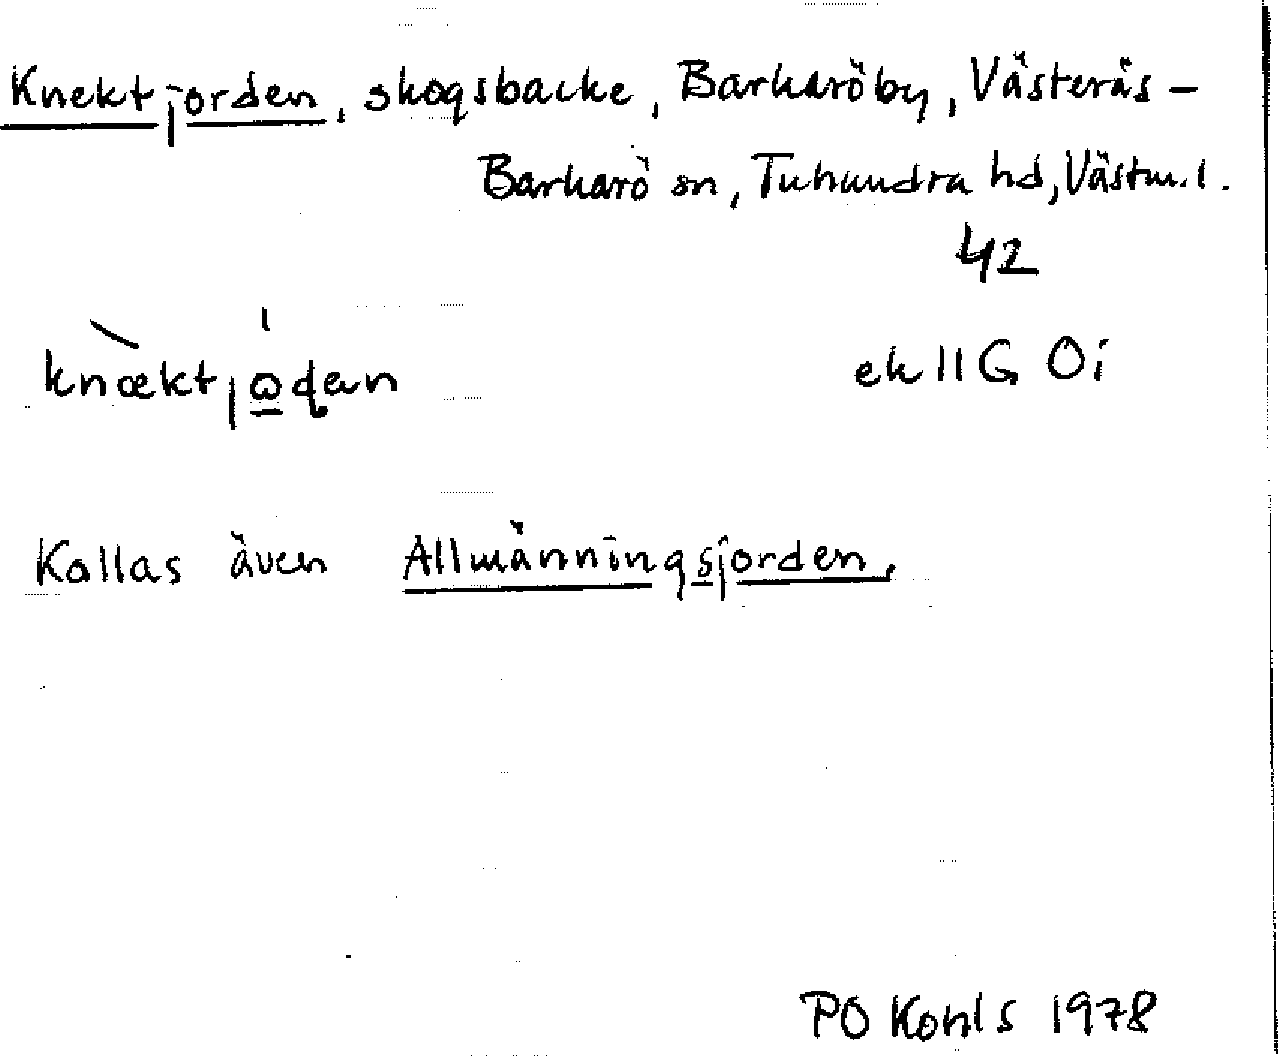 Knektjorden, skogsbacke, Barkaröby, Västerås-
Barkarö sn, Tuhundra hd, Västm.l.
42
knæktjɷdan ek 11G 0i
Kallas även Allmänningsjorden.
PO Kohls 1978